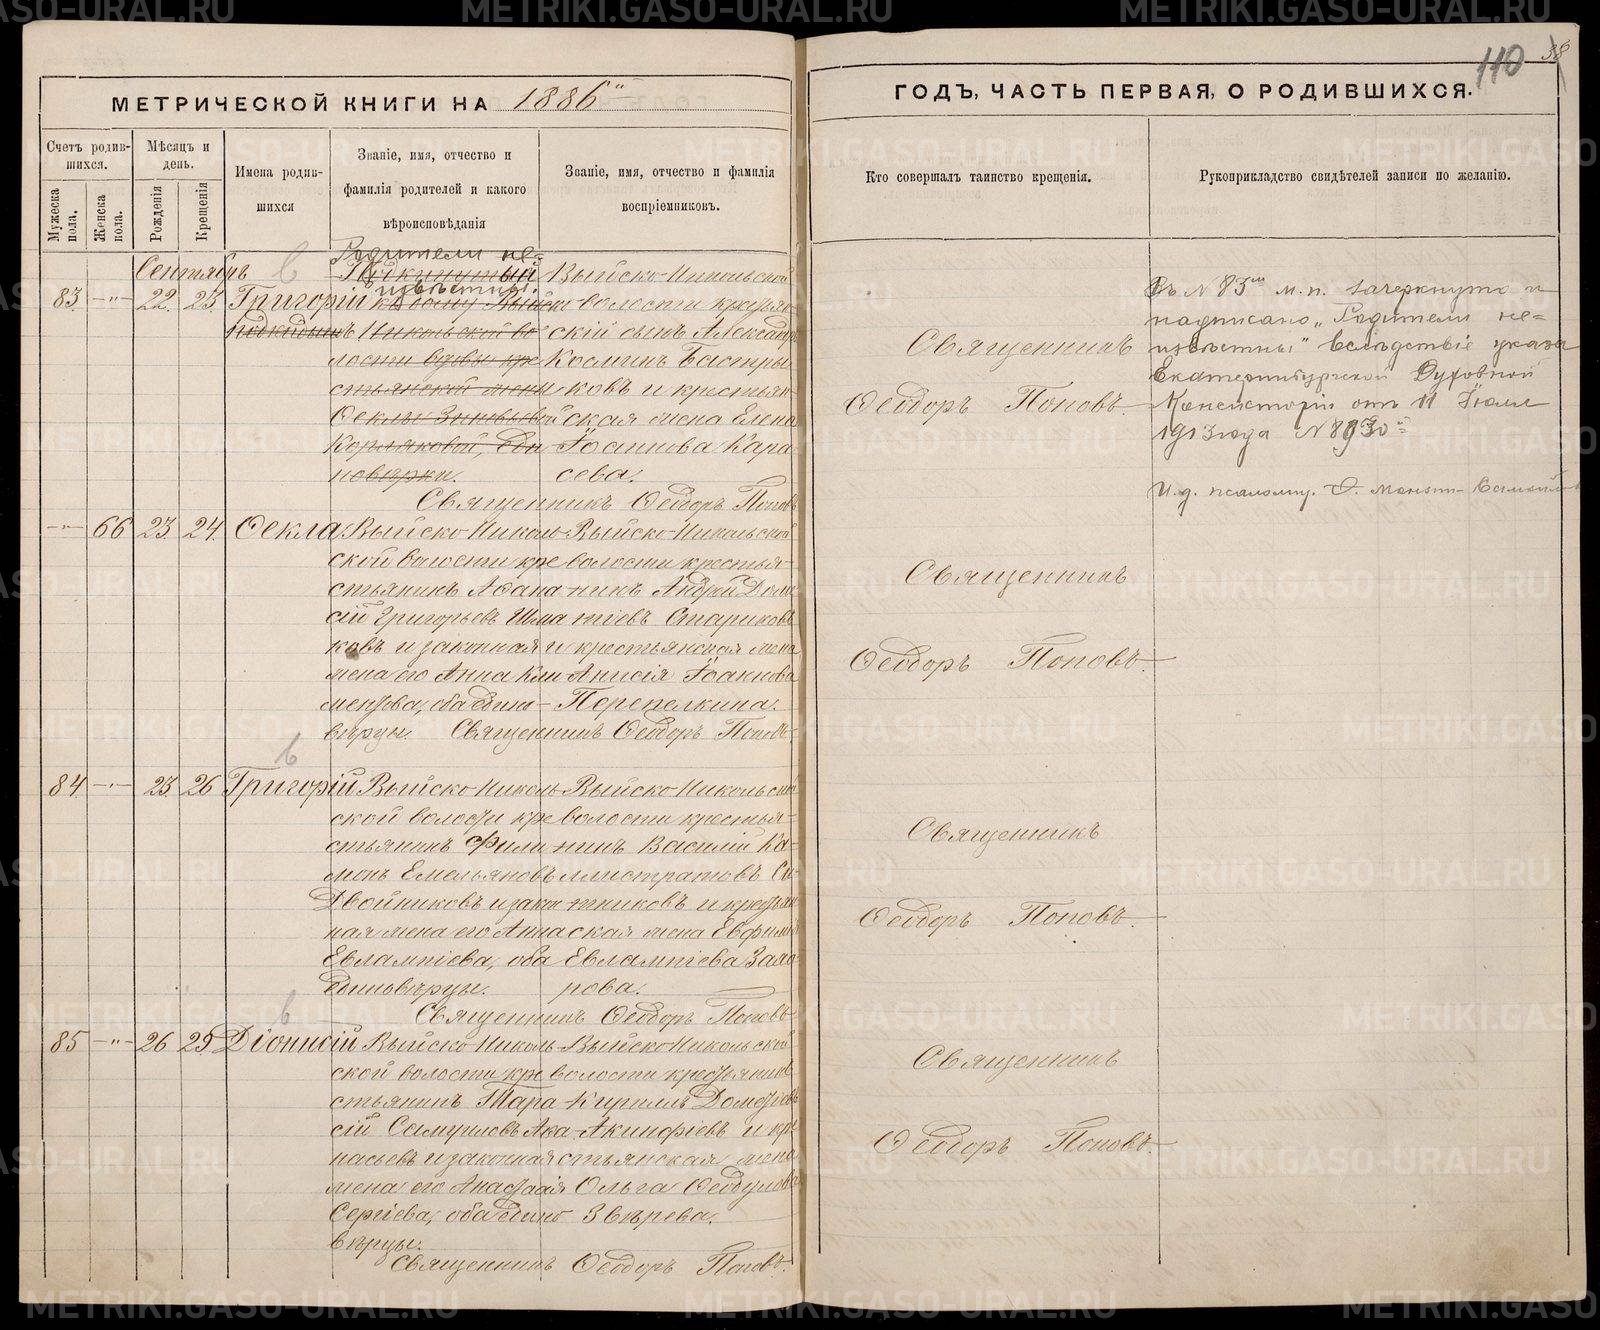 110 38
МЕТРИЧЕСКОЙ КНИГИ НА 1886й
ГОДЪ, ЧАСТЬ ПЕРВАЯ, О РОДИВШИХСЯ.
Счетъ родив-
шихся.
Мужеска пола.
Женска пола.
Мѣсяцъ и день.
Рожденія
Крещенія
Имена родив-
шихся
Званіе, имя, отчество и
фамилія родителей и какого
вѣроисповѣданія
Званіе, имя, отчество и фамилія
воспріемниковъ.
Кто совершалъ таинство крещенія.
Рукоприкладство свидѣтелей записи по желанію.
Сентябрь
83 -"- 22. 23. Григорій
подкидышъ
Родители не-
извѣстны.
Подкинутый
къ дому Выйско
Никольской во-
лости вдовы кре
стьянской жены
Ѳеклы Зиновьевой
Корляковой, еди
новѣрки.
Выйско-Никольской
волости крестьян
скій сынъ Александръ
Косминъ Бастры
ковъ и крестьян
ская жена Елена
Іоаннова Кара
сева.
Священникъ Ѳеодоръ Поповъ
Священникъ
Ѳеодоръ Поповъ.
Въ № 83мъ м.п. зачеркнуто и
надписано „Родители не=
извѣстны" вслѣдствіе указа
Екатеринбургской Духовной
Консисторіи отъ 11 Іюля
1913 года №
И. д. псаломщ.
-"- 66 23. 24. Ѳекла
Выйско-Николь-
ской волости кре
стьянинъ Аѳана
сій Григорьевъ Шма
ковъ и законная
жена его Анна Кли
ментова, оба едино-
вѣрцы.
Выйско-Никольской
волости крестья-
нинъ Андрей Домн
тіевъ Стариковъ
и крестьянская жена
Анисія Іоаннова
Перепелкина.
Священникъ Ѳеодоръ Поповъ.
Священникъ
Ѳеодоръ Поповъ.
84. -"- 23. 26 Григорій
Выйско-Николь-
ской волости кре
стьянинъ Фили
монъ Емельяновъ
Двойниковъ и закон
ная жена его Анна
Евлампіева, оба
единовѣрцы.
Выйско-Никольской
волости крестья-
нинъ Василій Ка-
ллистратовъ Си-
тниковъ и крестьян
ская жена Евфимія
Евлампіева Заха
рова.
Священникъ Ѳеодоръ Поповъ
Священникъ
Ѳеодоръ Поповъ.
85 -"- 26 29 Діонисій
Выйско-Николь-
ской волости кре
стьянинъ Тара
сій Самуиловъ Ака-
насьевъ и законная
жена его Анастасія
Сергіева, оба едино
вѣрцы.
Выйско-Никольской
волости крестьянинъ
Кириллъ Дометіевъ
Акинфіевъ и кре
стьянская жена
Ольга Ѳеодулова
Звѣрева.
Священникъ Ѳеодоръ Поповъ.
Священникъ
Ѳеодоръ Поповъ.
METRIKI.GASO-URAL.RU